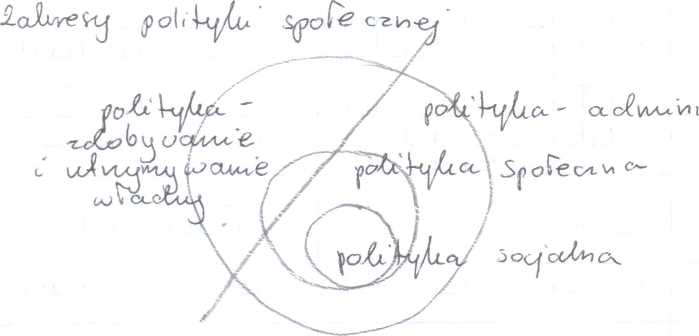 Zakresy polityki społecznej
polityka -
zdobywanie
i utrzymywanie
władzy.
polityka - admini
polityka społeczna
polityka socjalna